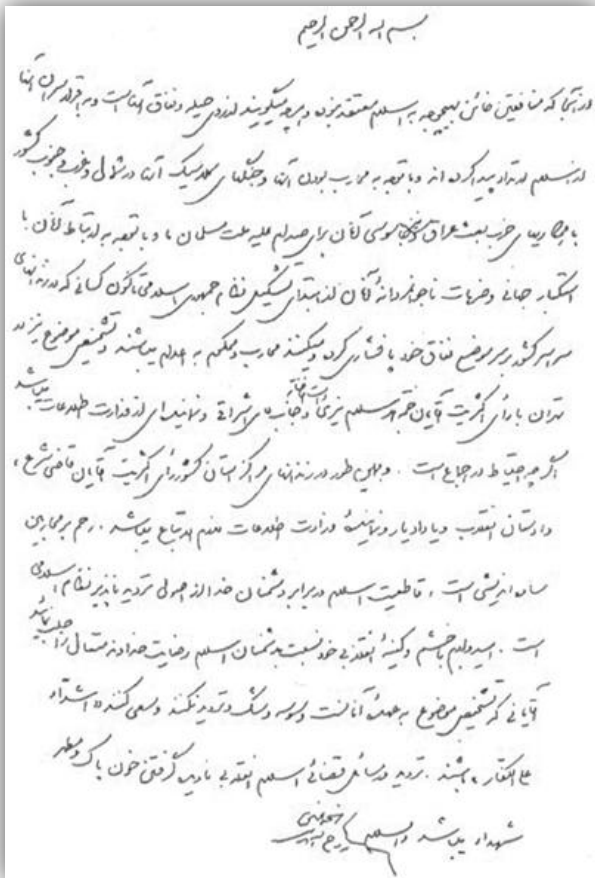 بسم الله الرحمن الرحیم
از آنجا که منافقین خائن بهیچوجه به اسلام معتقد نبوده و هرچه میگویند از روی حیله و نفاق آنهاست و به اقرار سران آنها
از اسلام ارتداد پیدا کرده اند و با توجه به محارب بودن آنها و جنگهای کلاسیک آنها در شمال و غرب و جنوب کشور
با همکاریهای حزب بعث عراق و نیز جاسوسی آنان برای صدام علیه ملت مسلمان ما و با توجه به ارتباط آنان با
استکبار جهانی و ضربات ناجوانمردانه آنان از ابتدای تشکیل نظام جمهوری اسلامی تا کنون کسانی که در زندانهای
سراسر کشور بر سر موضع نفاق خود پافشاری کرده و میکنند محارب و محکوم به اعدام میباشند و تشخیص موضوع نیز در
تهران با رأی اکثریت آقایان حجة الاسلام نیری دامت افاضاته و جناب آقای اشراقی و نماینده ای از وزارت اطلاعات میباشد
اگر چه احتیاط در اجماع است . و همین طور در زندانهای مراکز استان کشور رأی اکثریت آقایان قاضی شرع ،
دادستان انقلاب و یا دادیار و نماینده وزارت اطلاعات لازم الاتباع میباشد . رحم بر محاربین
ساده اندیشی است ، قاطعیت اسلام در برابر دشمنان خدا از اصول تردید ناپذیر نظام اسلامی
است . امیدوارم با خشم و کینه انقلابی خود نسبت به دشمنان اسلام رضایت خداوند متعال را جلب نمائید
آقایانی که تشخیص موضوع به عهده آنان است وسوسه و شک و تردید نکنند و سعی کنند « اشداء
علی الکفار » باشند . تردید در مسائل قضائی اسلام انقلابی نادیده گرفتن خون پاک و مطهر
شهداء میباشد والسلام
روح الله الموسوی الخمینی